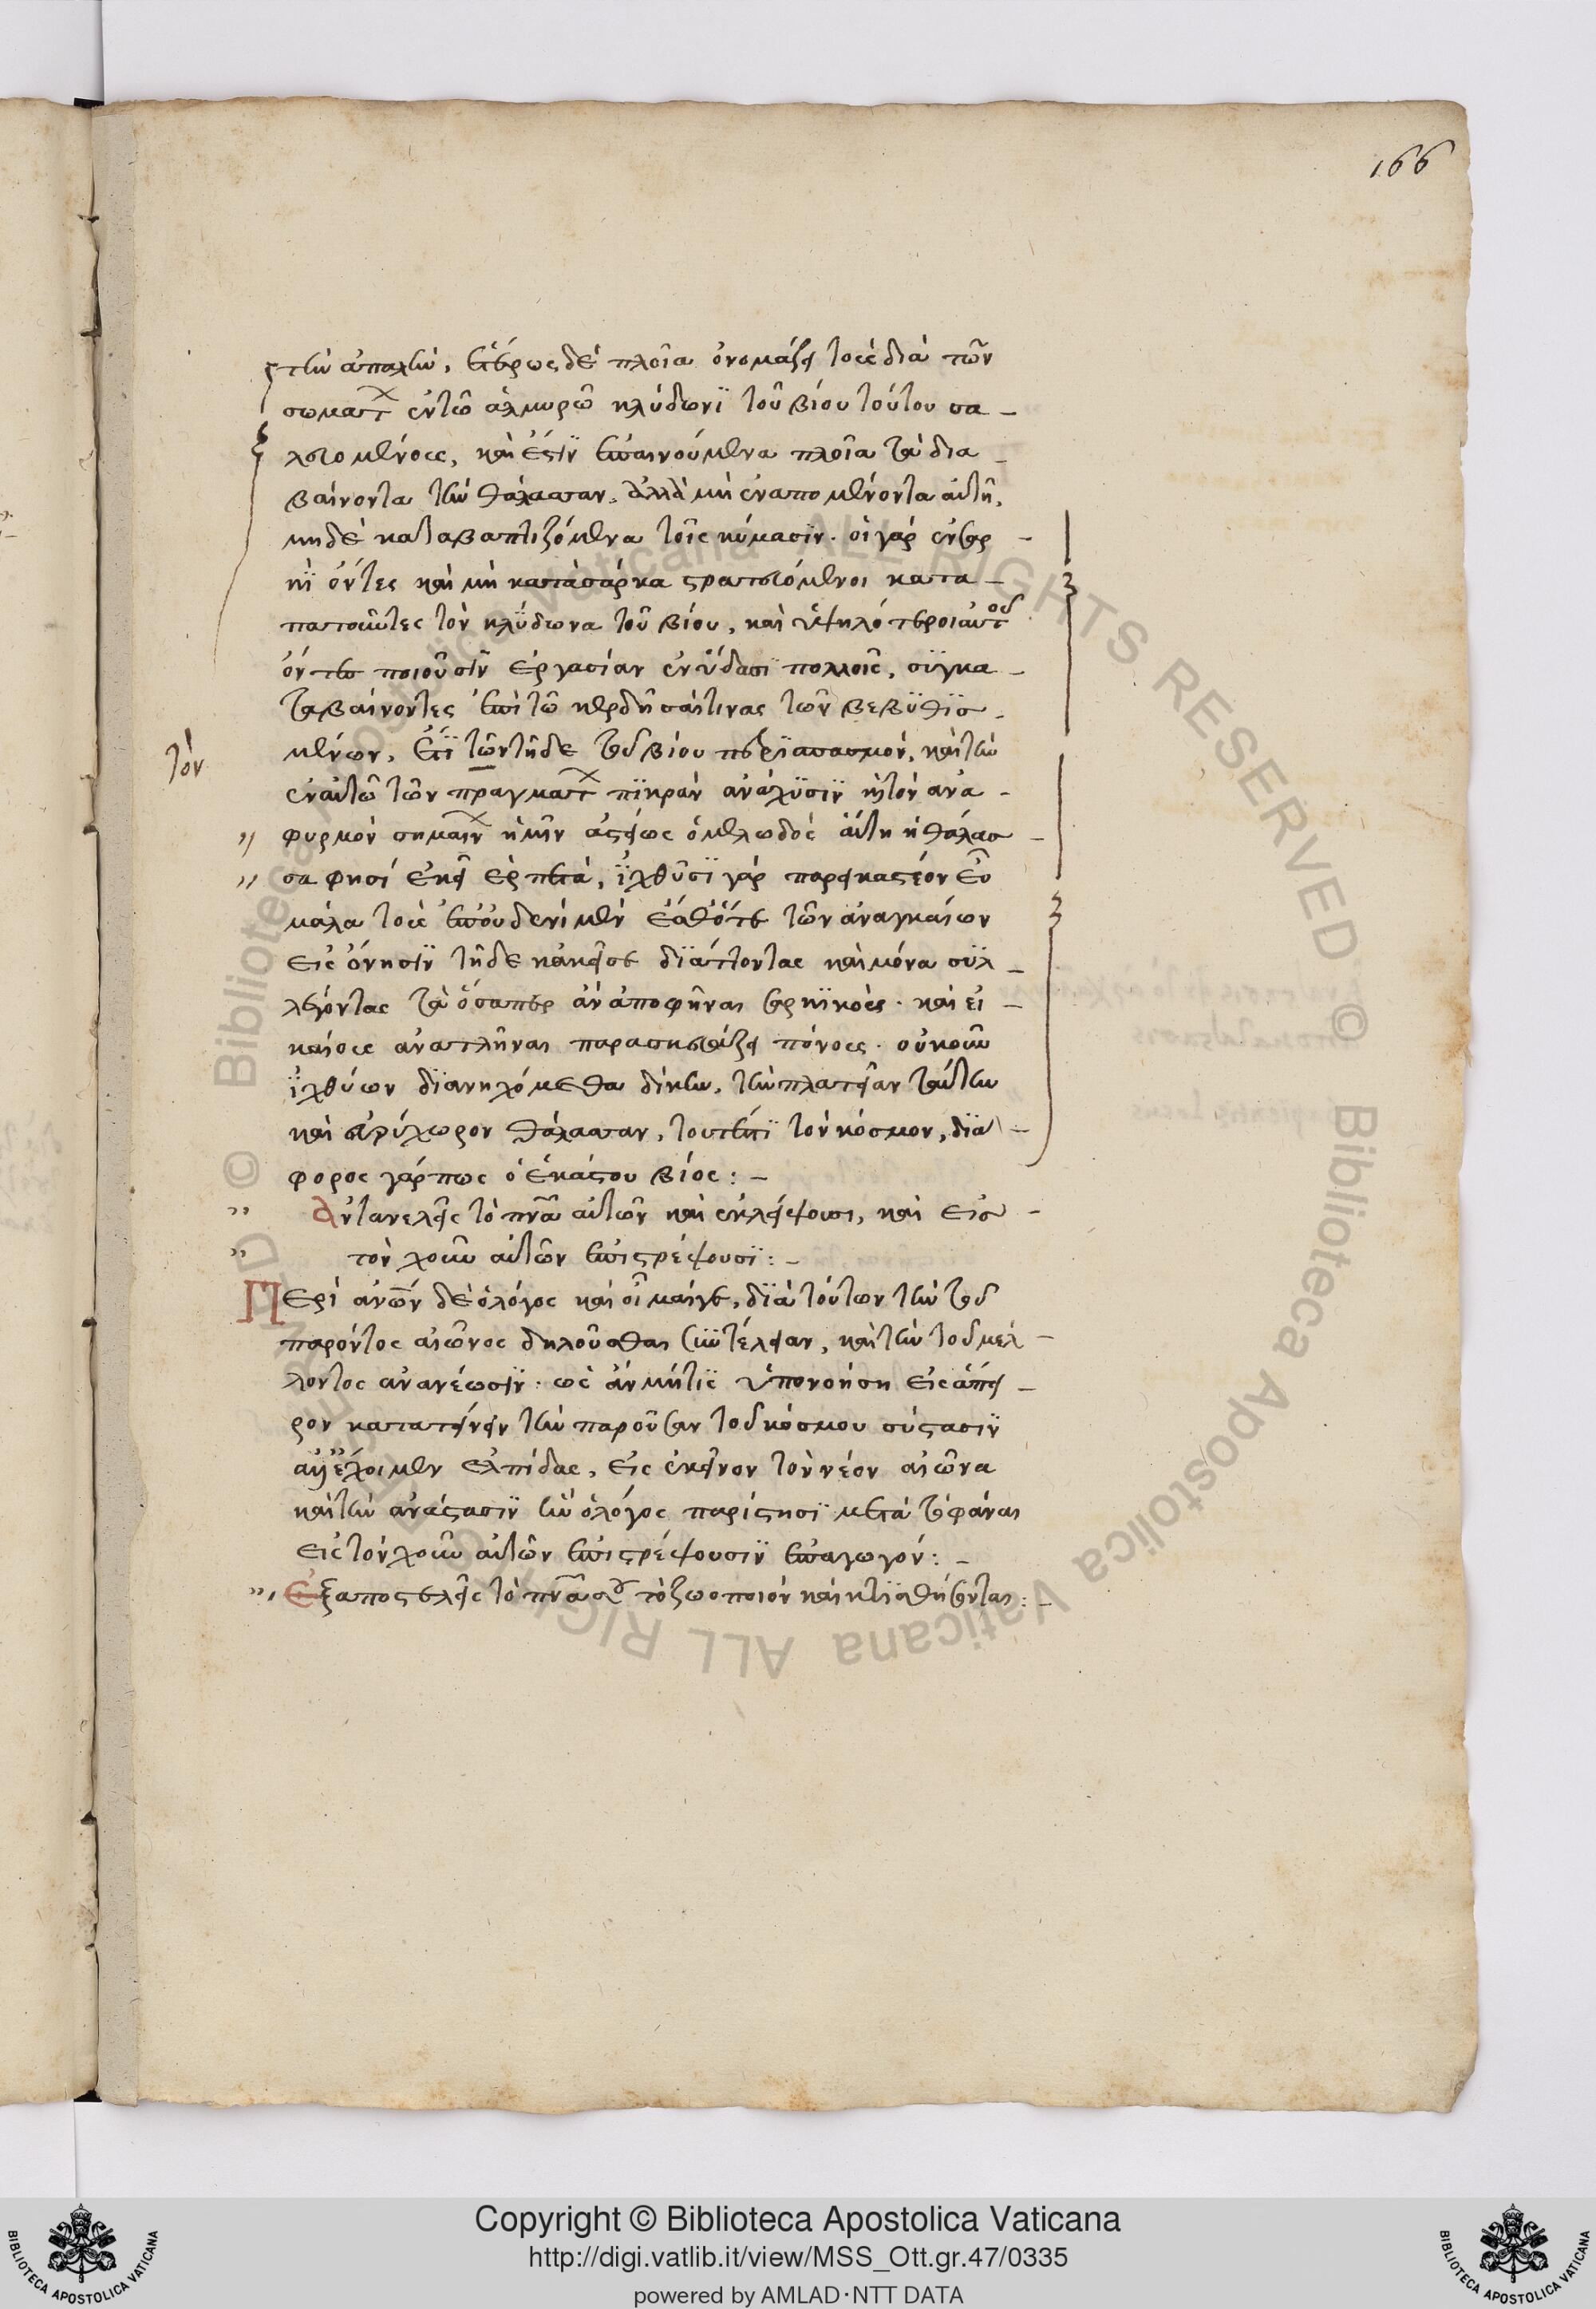 166
τὴν ἀπαλὴν, ἑτέρως δὲ πλοῖα ὀνομάζει τοὺς διὰ τῶν
σωματ ἐν τῶ ἁλμυρῶ κλύδωνϊ τοῦ βίου τούτου σα -
λευομένους, καὶ ἔστϊν ἐπαινούμενα πλοῖα τὰ δια -
βαίνοντα τὴν θάλασσαν. ἀλλὰ μὴ ἐναπομένοντα αὐτῆ,
μηδὲ καταβαπτιζόμενα τοῖς κύμασϊν. οἱ γὰρ ἐν σαρ -
κὶ ὄντες καὶ μὴ κατὰ σάρκα στρατευόμενοι κατα -
πατοῦντες τὸν κλύδωνα τοῦ βίου, καὶ ὑψηλότεροι αὐτοῦ
ὄντες ποιοῦσιν ἐργασίαν ἐν ὕδασϊ πολλοῖς, συγκα -
ταβαίνοντες ἐπὶ τῶ κερδῆσαί τινας τῶν βεβυθϊσ -
μένων. ἔτϊ τῶν τῆδε τοῦ βίου περϊσπασμὸν, καὶ τὴν
τὸν
ἐν αὐτῶ τῶν πραγματ πϊκρὰν ἀνάχυσϊν ἤτοι ἀνα -
φυρμὸν σημαίν ἡμῖν ἀστείως ὁ μελωδὸς αὕτη ἡ θάλασ -
σα φησί ἐκεῖ ἑρπετὰ, ἰχθύσϊ γὰρ παρεικαστέον εὖ
μάλα τοὺς ἐπ' οὐδενὶ μὲν ἔσθ' ὅτε τῶν ἀναγκαίων
εἰς ὄνησϊν τῆδε κἀκεῖσε διάττοντας καὶ μόνα συλ -
λέγοντας τὰ ὅσαπερ ἂν ἀποφῆναι σαρκϊκοὺς. καὶ εἰ -
καίους ἀνατλῆναι παρασκευάζει πόνους. οὐκοῦν
ἰχθύων διανηχόμεθα δίκην, τὴν πλατεῖαν ταύτην
καὶ εὐρύχωρον θάλασσαν, τουτέστϊ τὸν κόσμον, διά -
φορος γάρ πως ὁ ἑκάστου βίος : -
Ἀντανελεῖς τὸ πνα αὐτῶν καὶ ἐκλείψουσι, καὶ εἰς -
τὸν χοῦν αὐτῶν ἐπιστρέψουσϊ : -
Περὶ ἀνων δὲ ὁ λόγος καὶ οἶμαί γε, διὰ τούτων τὴν τοῦ
παρόντος αἰῶνος δηλοῦσθαι συντέλειαν, καὶ τὴν τοῦ μέλ -
λοντος ἀνανέωσϊν. ὡς ἂν μήτις ὑπονοήση εἰς ἄπει -
ρον κατατείνειν τὴν παροῦσαν τοῦ κόσμου σύστασϊν
εἰς ἐκεῖνον τὸν νέον αἰῶνα
καὶ τὴν ἀνάστασϊν ὁ λόγος παρίστησϊ μετὰ τὸ φάναι
εἰς τὸν χοῦν αὐτῶν ἐπιστρέψουσϊν ἐπαγωγόν : -
Ἐξαποστελεῖς τὸ πνα σου τὸ ζωοποιὸν καὶ κτισθήσονται : -
Copyright © Biblioteca Apostolica Vaticana
http://digi.vatlib.it/view/MSS_Ott.gr.47/0335
powered by AMLAD·NTT DATA
BIBLIOTECA APOSTOLICA VATICANA
BIBLIOTECA APOSTOLICA VATICANA